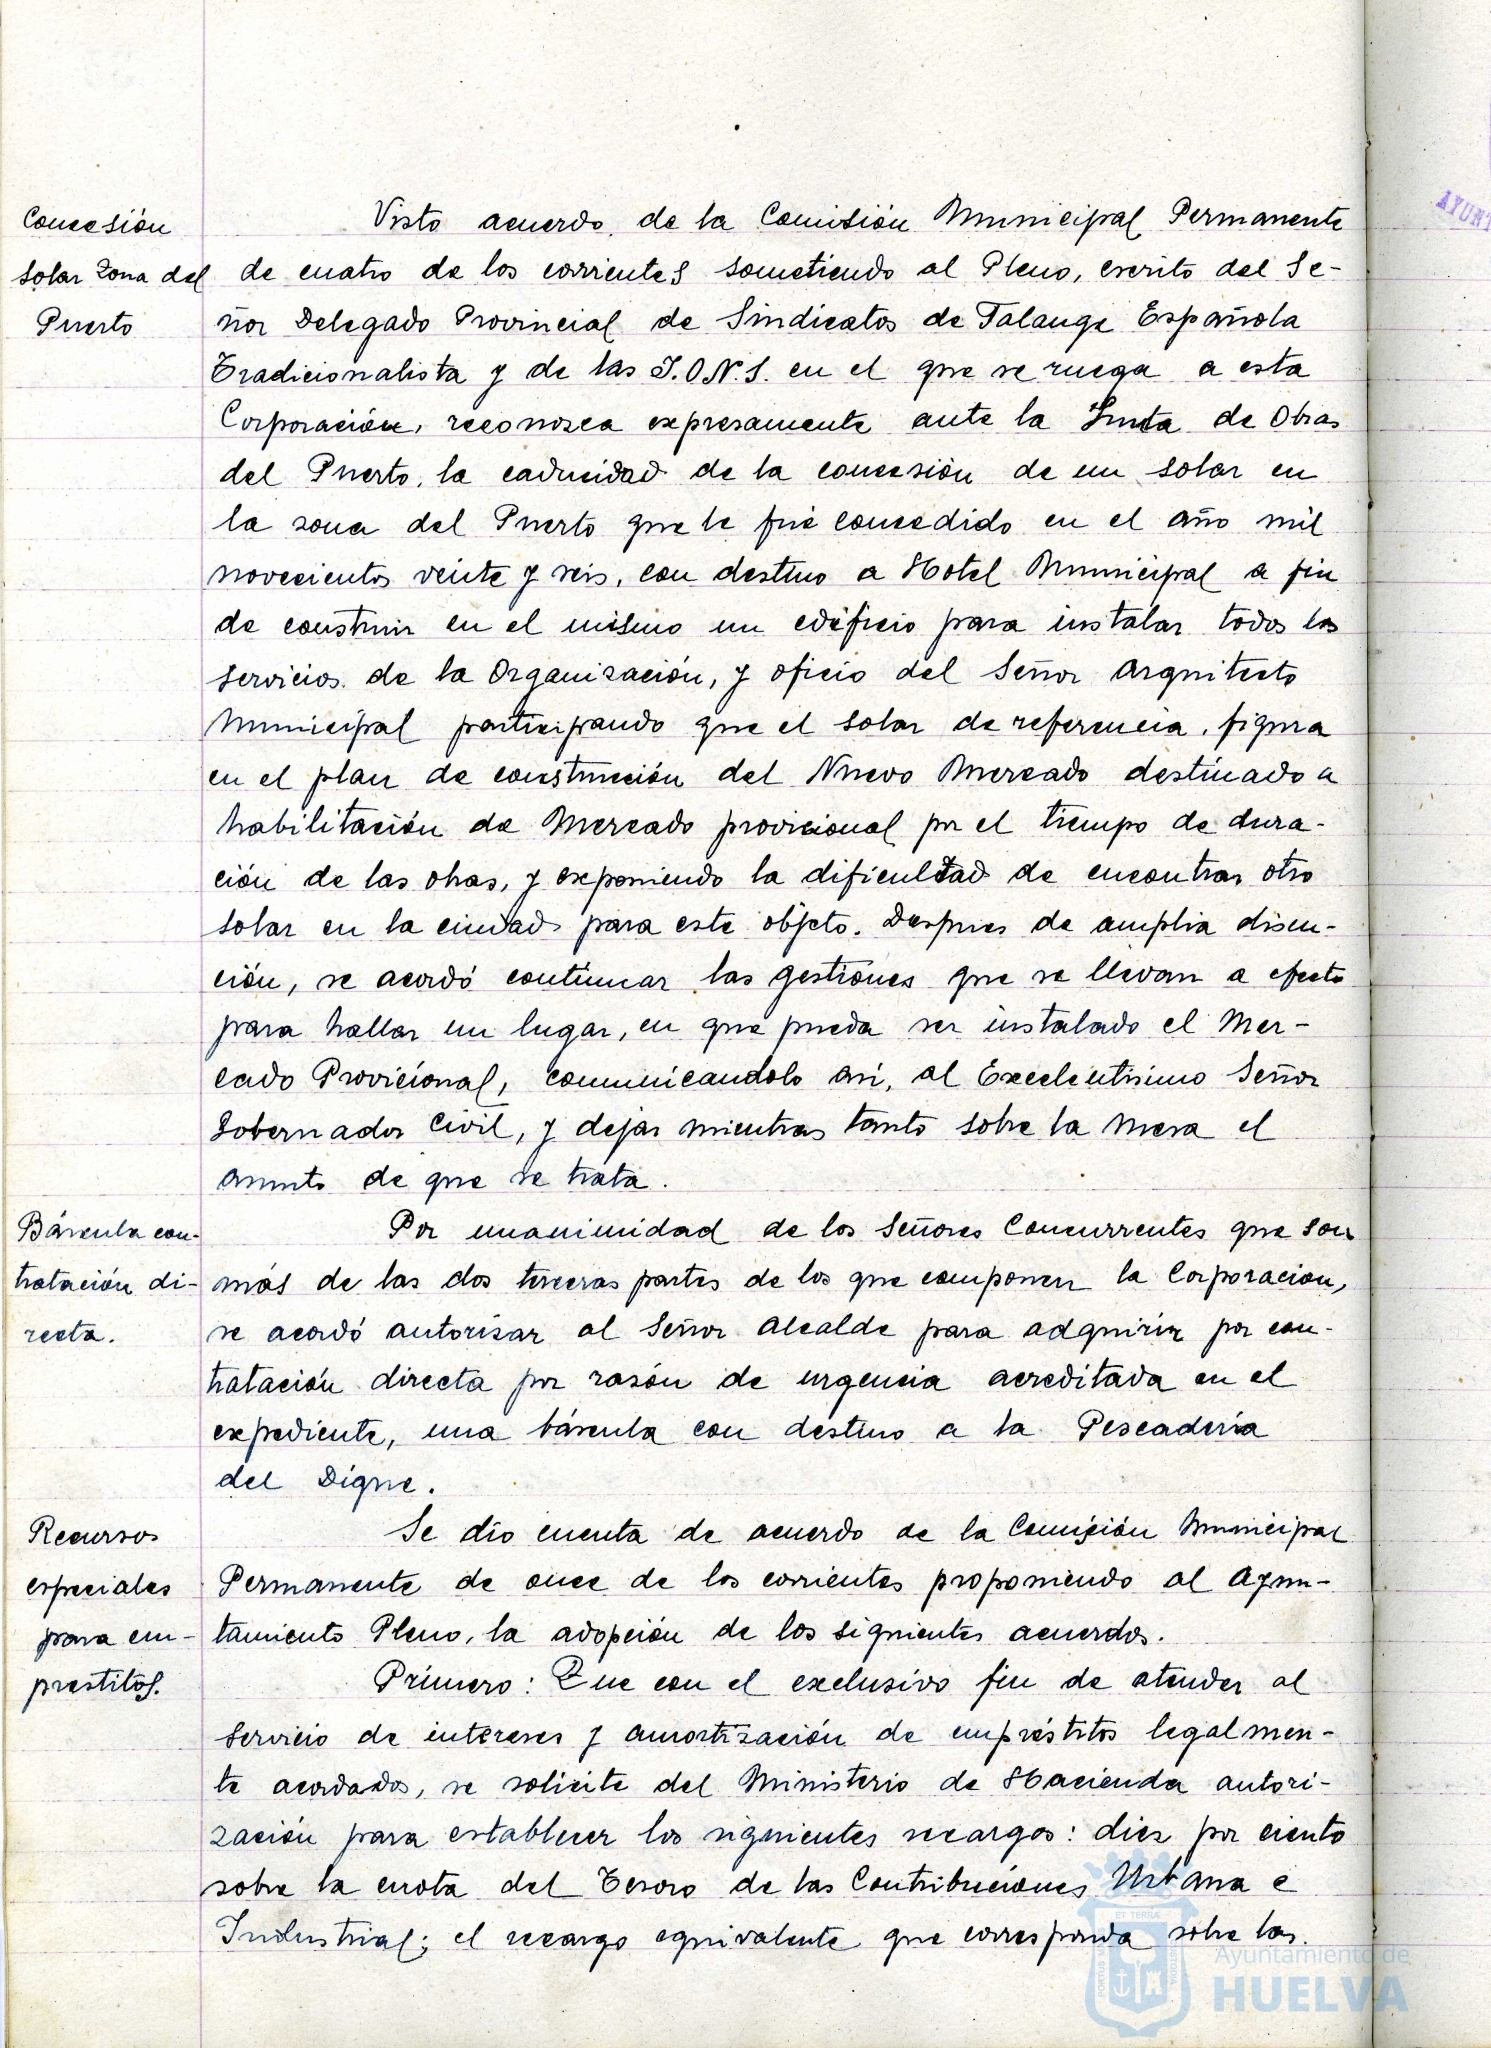 Concesión
solar Zona del
Puerto
Visto acuerdo de la Comisión Municipal Permanente
de cuatro de los corrientes sometiendo al Pleno, escrito del Se-
ñor Delegado Provincial de Sindicatos de Falange Española
Tradicionalista y de las J.O.N.S. en el que se ruega a esta
Corporación, reconozca expresamente ante la Junta de Obras
del Puerto, la caducidad de la concesión de un solar en
la zona del Puerto que le fué concedido en el año mil
novecientos veinte y seis, con destino a Hotel Municipal a fin
de construir en el mismo un edificio para instalar todos los
servicios de la Organización, y oficio del Señor Arquitecto
Municipal participando que el solar de referencia, figura
en el plan de construcción del Nuevo Mercado destinado a
habilitación de Mercado provicional por el tiempo de dura-
ción de las obras, y exponiendo la dificultad de encontrar otro
solar en la ciudad para este objeto. Despues de amplia discu-
ción, se acordó continuar las gestiones que se llevan a efecto
para hallar un lugar, en que pueda ser instalado el Mer-
cado Provicional, comunicandolo así, al Excelentísimo Señor
Gobernador Civil, y dejar mientras tanto sobre la Mesa el
asunto de que se trata.
Báscula con-
tratación di-
recta.
Por unanimidad de los Señores Concurrentes que son
más de las dos terceras partes de los que componen la Corporación,
se acordó autorizar al Señor Alcalde para adquirir por con-
tratación directa por razón de urgencia acreditada en el
expediente, una báscula con destino a la Pescadería
del Dique.
Recursos
especiales
para em-
prestitos.
Se dio cuenta de acuerdo de la Comisión Municipal
Permanente de once de los corrientes proponiendo al Ayun-
tamiento Pleno, la adopción de los siguientes acuerdos.
Primero: Que con el exclusivo fin de atender al
servicio de intereses y amortización de empréstitos legalmen-
te acordados, se solicite del Ministerio de Hacienda autori-
zación para establecer los siguientes recargos: diez por ciento
sobre la cuota del Tesoro de las Contribuciones Urbana e
Industrial; el recargo equivalente que corresponda sobre las
Ayuntamiento de
HUELVA